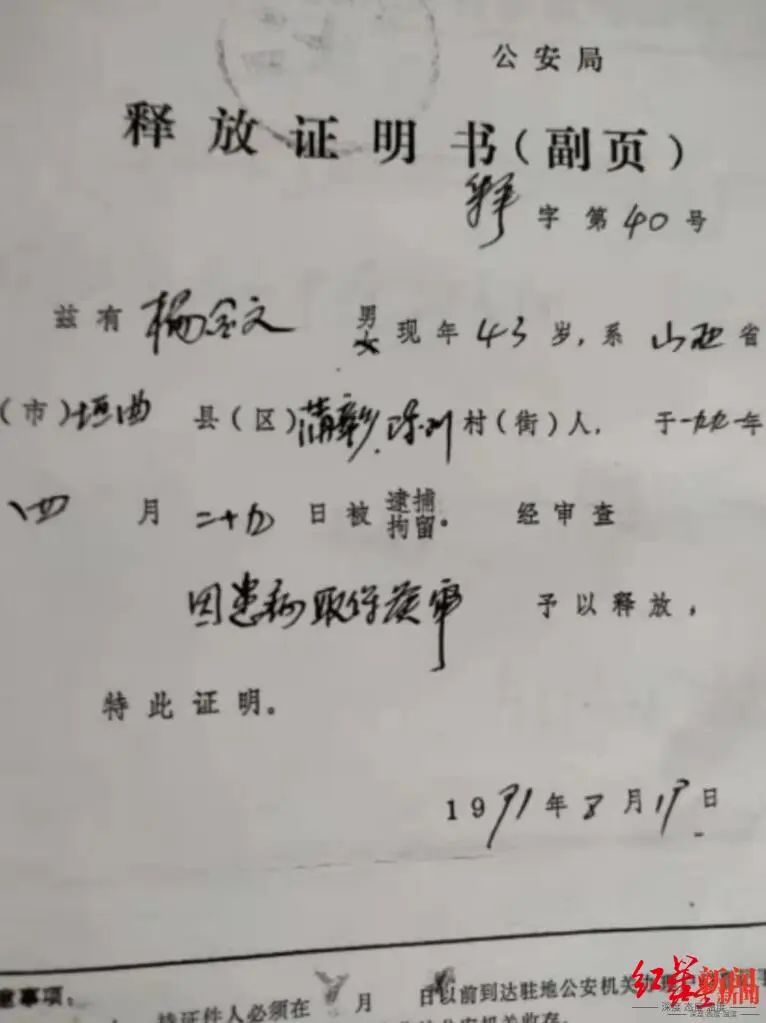 公安局
释放证明书(副页)
释字第40号
兹有杨金文 男女现年43岁,系山西省
(市)垣曲县(区)蒲掌乡 川村(街)人. 于一九九一年
四月二十九日被逮捕拘留。 经审查
因患病取保候审 予以释放,
特此证明。
1991年8月 日
意事项:
持证件人必须在 月 日以前到达驻地公安机关办理
公安机关收存。
红星新闻
深度 态度 温度